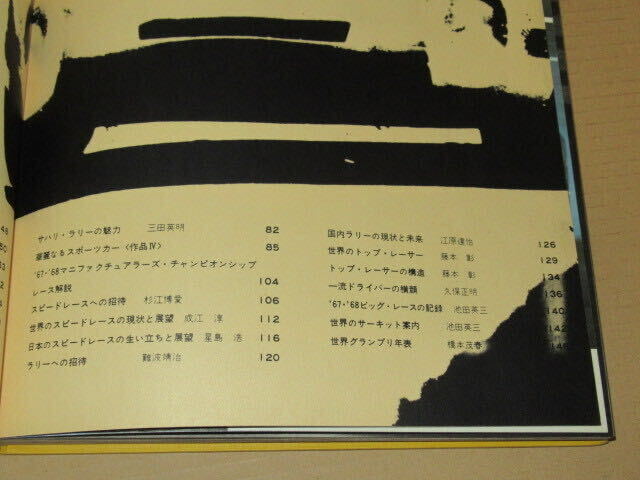 サハリ・ラリーの魅力 三田英明 82
華麗なるスポーツカー〈作品Ⅳ〉 85
'67・'68マニファクチュアラーズ・チャンピオンシップ
レース解説 104
スピードレースへの招待 杉江博愛 106
世界のスピードレースの現状と展望 成江 淳 112
日本のスピードレースの生い立ちと展望 星島 浩 116
ラリーへの招待 難波靖治 120
国内ラリーの現状と未来 江原達怡 126
世界のトップ・レーサー 藤本 彰 129
トップ・レーサーの構造 藤本 彰 134
一流ドライバーの横顔 久保正明 136
'67・'68ビッグ・レースの記録 池田英三 140
世界のサーキット案内 池田英三 142
世界グランプリ年表 橋本茂春